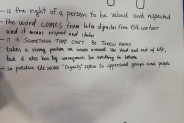 - is the right of a person to be valued and respected
- the word comes from latin dignitas from 13th century
and it means respect and status
- IT IS SOMETHING THAT CAN'T BE TAKEN AWAY
- takes a strong position on issues around the start and end of life,
but is also used by
- in practice the word "Dignity" refers to oppressed groups and people